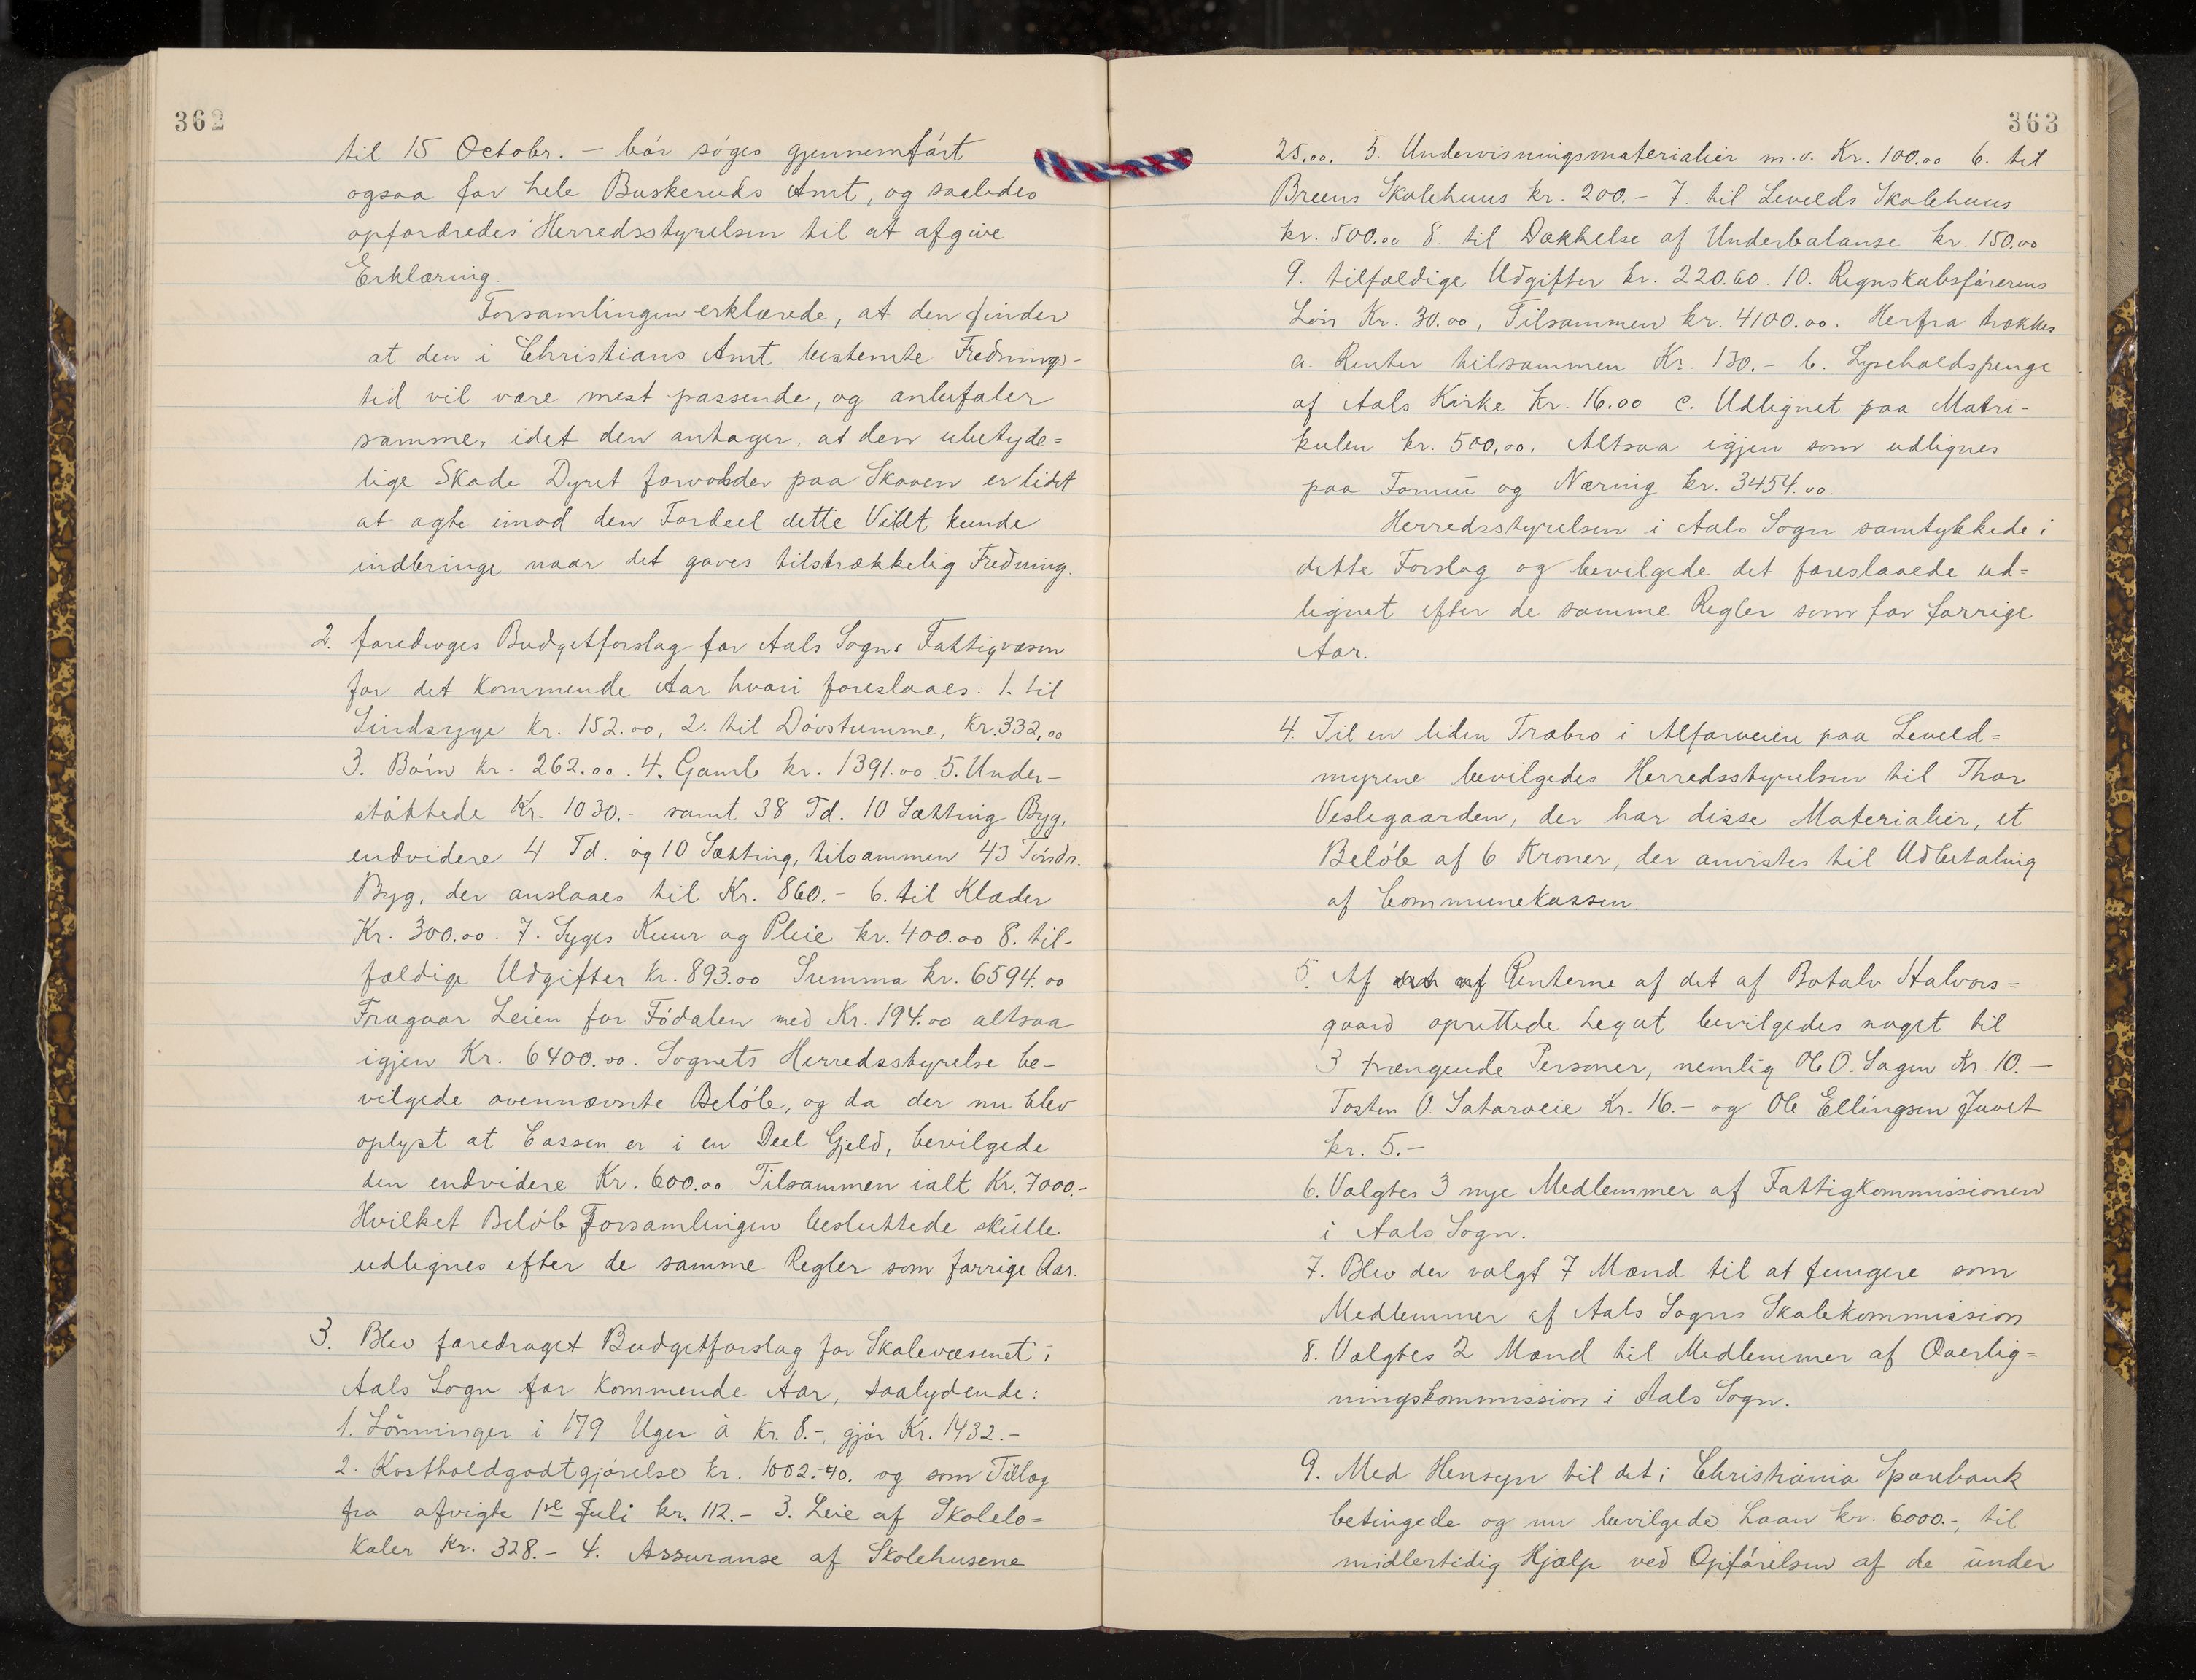 362
til 15 Octobr. – bør søges gjennemført
ogsaa for hele Buskeruds Amt, og saaledes
opfordredes Herredsstyrelsen til at afgive
Erklæring.
Forsamlingen erklærede, at den finder
at den i Christians Amt bestemte Frednings-
tid vil være mest passende, og anbefaler
samme, idet den antager, at den ubetyde=
lige Skade Dyret forvolder paa Skoven er lidet
at agte imod den Fordeel dette Vildt kunde
indbringe naar det gaves tilstrækkelig Fredning.
2. foredroges Budgetforslag for Aals Sogns Fattigvæsen
for det kommende Aar hvori foreslaaes: 1. til
Sindsyge kr. 152.00, 2. til Døvstumme, kr. 332,00
3. Børn kr. 262.00. 4. Gamle kr. 1391.00 5. Under-
støttede Kr. 1030.- samt 38 Td. 10 Sætting Byg,
endvidere 4 Td. og 10 Sætting, tilsammen 43 Tønder
Byg, der anslaaes til Kr. 860.- 6. til Klæder
Kr. 300.00. 7. Syges Kuur og Pleie kr. 400.00 8. til-
fældige Udgifter kr. 893.00 Summa kr. 6594.00
Fragaar Leien for Fødalen med Kr. 194.00 altsaa
igjen Kr. 6400.00. Sognets Herredsstyrelse be-
vilgede ovennævnte Beløb, og da der nu blev
oplyst at Cassen er i en Deel Gjeld, bevilgede
den endvidere Kr. 600.00. Tilsammen ialt Kr. 7000.-
Hvilket Beløb Forsamlingen besluttede skulle
udlignes efter de samme Regler som forrige Aar.
3. Blev foredraget Budgetforslag for Skolevæsenet i
Aals Sogn for kommende Aar, saalydende:
1. Lønninger i 179 Uger à kr. 8.-, gjør Kr. 1432.-
2. Kostholdgodtgjørelse kr. 1002.40. og som Tillæg
fra afvigte 1ste Juli kr. 112.- 3. Leie af Skolelo=
kaler Kr. 328.- 4. Assuranse af Skolehusene
363
25.00. 5. Undervisningsmaterialier m.v. Kr. 100.00 6. til
Breens Skolehuus kr. 200.- 7. til Levelds Skolehuus
kr. 500.00 8. til Dækkelse af Underbalanse kr. 150.00
9. tilfældige Udgifter kr. 220.60. 10. Regnskabsførerens
Løn Kr. 30.00, Tilsammen kr. 4100.00. Herfra trækkes
a. Renter tilsammen Kr. 130.- b. Lyseholdspenge
af Aals Kirke Kr. 16.00 c. Udlignet paa Matri-
kulen kr. 500,00. Altsaa igjen som udlignes
paa Formue og Næring kr. 3454.00.
Herredsstyrelsen i Aals Sogn samtykkede i
dette Forslag og bevilgede det foreslaaede ud=
lignet efter de samme Regler som for forrige
Aar.
4. Til en liden Træbro i Alfarveien paa Leveld=
myrene bevilgedes Herredsstyrelsen til Thor
Veslegaarden, der har disse Materialier, et
Beløb af 6 Kroner, der anvistes til Udbetaling
af Communekassen.
5. Af det af Renterne af det af Botolv Halvors=
gaard oprettede Legat bevilgedes noget til
3 trængende Personer, nemlig Ole O. Sagen Kr. 10.–
Tosten O. Sataroeie Kr. 16.- og Ole Ellingsen Juvet
kr. 5.–
6. Valgtes 3 nye Medlemmer af Fattigkommissionen
i Aals Sogn.
7. Blev der valgt 7 Mænd til at fungere som
Medlemmer af Aals Sogns Skolekommission
8. Valgtes 2 Mænd til Medlemmer af Overlig=
ningskommission i Aals Sogn.
9. Med Hensyn til det i Christiania Sparebank
betingede og nu bevilgede Laan kr. 6000.-, til
midlertidig Hjælp ved Opførelsen af de under